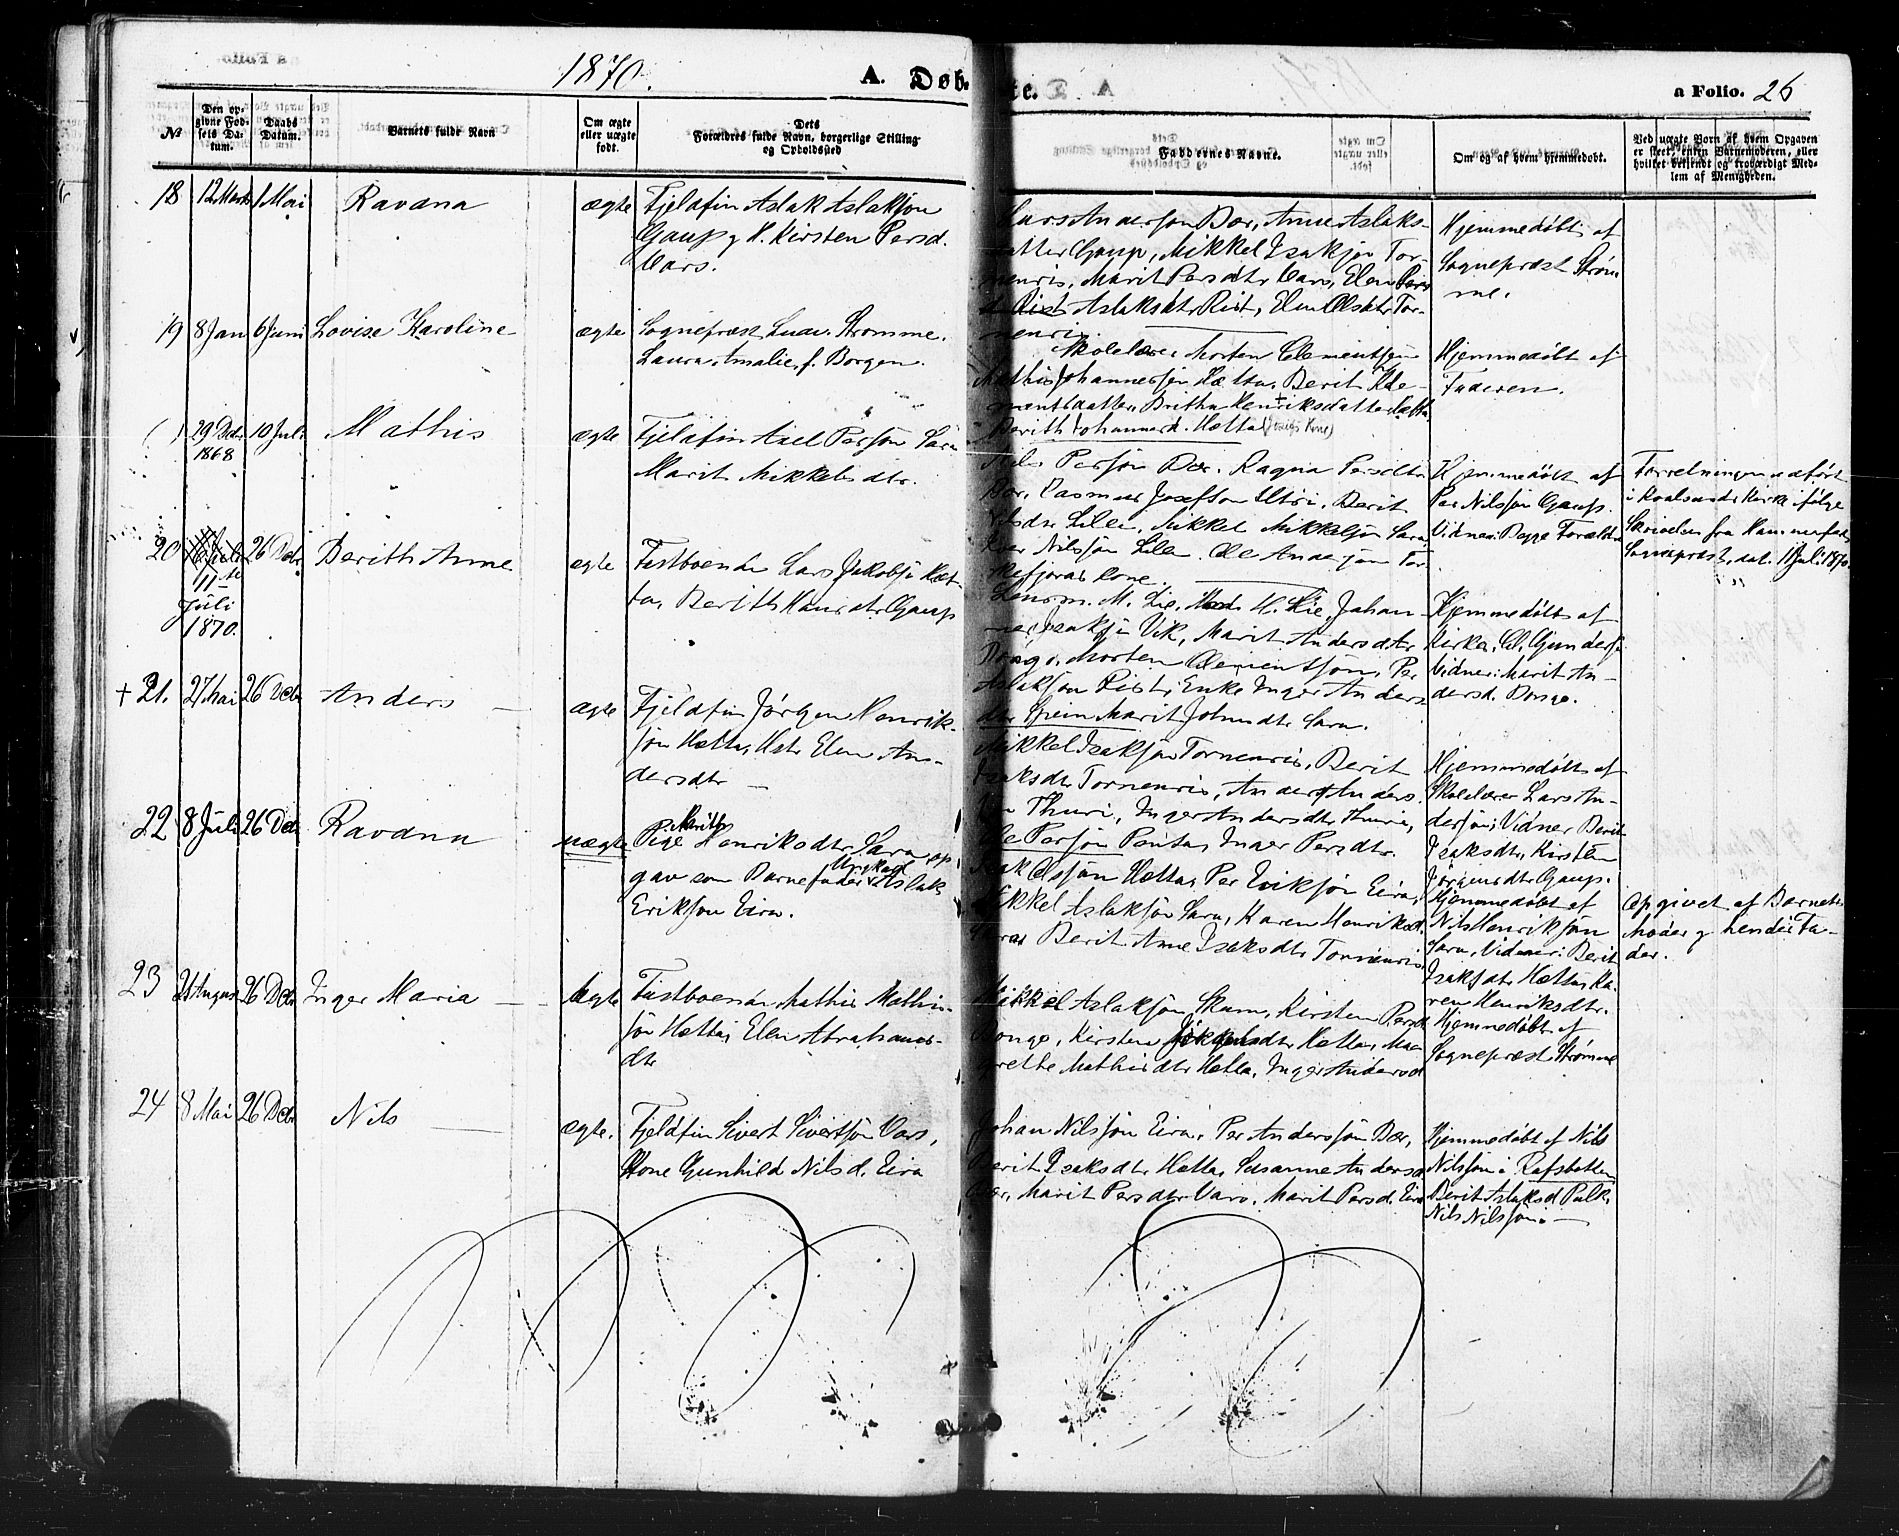 1870.
A. Døb-
te.
a Folio. 26
№
Den op-
givne Fød-
sels Da-
tum.
Daabs
Datum.
Barnets fulde Navn
Om ægte
eller uægte
født.
Dets
Forældres fulde Navn, borgerlige Stilling
og Opholdssted
Faddernes Navne.
Om og af hvem hjemmedøbt.
Ved uægte Børn af hvem Opgaven
er skeet, enten Barnemoderen, eller
hvilket bekjendt og troværdigt Med-
lem af Menigheden.
18
12 Marts
1 Mai
Ravdna
ægte
Fjeldfin Aslak Aslaksøn
Gaup og H. Kirsten Persd.
Vars.
Lars Andersøn Bær, Anne Aslaks-
datter Gaup, Mikkel Isaksøn Tor-
nenris, Marit Persdtr Vars, Elen
Aslaksdtr Rist, Elen Olsdtr Tor-
nenris.
Hjemmedøbt af
Sognepræst Strøm
me.
19
8 Jan
6 Juni
Lovise Karoline
ægte
Sognepræst Ludv. Strømme.
Laura Amalie f. Borgen.
Skolelærer Morten Clementsøn
Mathis Johannessøn Hætta, Berit Kle-
mentsdatter, Britha Henriksdatter Hætta,
Berith Johannesd. Hætta
Hjemmedøbt af
Faderen.
( )
29 Dcbr
1868
10 Juli
Mathis
ægte
Fjeldfin Axel Persøn Sara
Marit Mikkelsdtr.
Nils Persøn Bær. Ragna Persdtr
Bær, Rasmus Josefsøn Utsi, Berit
Lile, Mikkel Mikkelsøn Sara
Nilsøn Lile. Ole Andersøn
Kone.
Hjemmedøbt af
Per Nilsøn Gaup.
Vidner: Begge Forældre
Forretningen udført
i Kvalsunds Kirke ifølge
Skrivelse fra Hammerfest
Sognepræst, dat. 11 Juli 1870.
20
11te
Juli
1870.
26 Dcbr
Berith Anne
ægte
Fastboende Lars Jakobsøn Hæt-
ta, Berith Hansdtr Gaup
Lensm. M. Lie, H. Lie, Johan-
nes Isaksøn Vik, Marit Andersdtr
Dongo, Morten Clementsøn, Per
Aslaksøn Rist, Enke Inger Anders-
dtr Spein Marit Johnsdtr Sara.
Hjemmedøbt af
Kirkes. Gundersøn
Vidner: Marit An-
dersd. Dongo.
+ 21.
27 Mai
26 Dcbr
Anders
ægte
Fjeldfin Jørgen Henrik-
søn Hætta, Hstr Elen An-
dersdtr
Mikkel Isaksøn Tornenris, Berit
Isaksdtr Tornenris, Anders Anders-
søn Thuri, Inger Andersdtr Thuri,
Ole Persøn Pentas, Inger Persdtr.
Hjemmedøbt af
Skolelærer Lars An-
dersøn; Vidner Berit
Isaksdtr, Kirsten
Jørgensdtr Gaup.
22
8 Juli
26 Dcbr
Ravdna
uægte
Pige Marith Henriksdtr Sara op
gav som Barnefader Ungkarl Aslak
Eriksøn Eira.
Isak Olsøn Hætta, Per Eriksøn Eira,
Mikkel Aslaksøn Sara, Karen Henriksd.
Sara Berit Anne Isaksdtr Tornenris
Hjemmedøbt af
Nils Henriksøn
Sara, Vidner: Berit
Isaksdtr Hætta, Ka-
ren Henriksdtr.
Opgivet af Barnets
Moder og hendes Fa-
der.
23
21 August
26 Dcbr
Inger Maria
ægte
Fastboende Mathis Mathis-
søn Hætta, Elen Abrahams-
dtr
Mikkel Aslaksøn Skum, Kirsten Persd.
Dongo, Kirsten Hætta, Mar-
grethe Mathisdtr Hætta, Inger Andersd
Hjemmedøbt af
Sognepræst Strømme
24
8 Mai
26 Dcbr
Nils
ægte.
Fjeldfin Sivert Sivertsøn Vars,
Kone Gunhild Nilsd. Eira
Johan Nilssøn Eira, Per Anderssøn Bær,
Berit Isaksdtr Hætta, Susanne Andersd
Bær, Marit Persdtr Vars, Marit Persd. Eira
Hjemmedøbt af Nils
Nilsøn i Rafsbotten
Berit Aslaksd Pulk.
Nils Nilssøn.